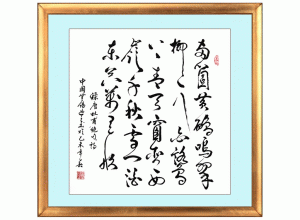 兩箇黃鸝鳴翠
柳一行白鷺
上青天窗含西
嶺千秋雪门泊
東吴萬里船
錄唐杜甫絕句诗
中國
乙未年